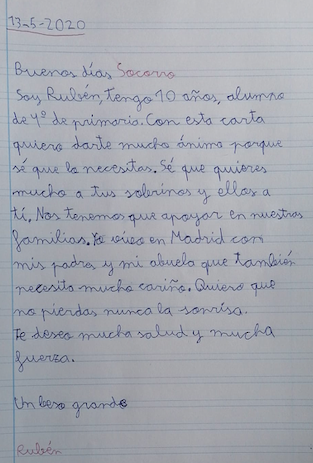 13-5-2020
Buenos días Socorro
Soy Rubén, tengo 10 años, alumno
de 4º de primaria. Con esta carta
quiero darte mucho ánimo porque
sé que lo necesitas. Sé que quieres
mucho a tus sobrinos y ellos a
tí. Nos tenemos que apoyar en nuestras
familias. Yo vivo en Madrid con
mis padres y mi abuela que también
necesita mucho cariño. Quiero que
no pierdas nunca la sonrisa.
Te deseo mucha salud y mucha
fuerza.
Un beso grande
Rubén